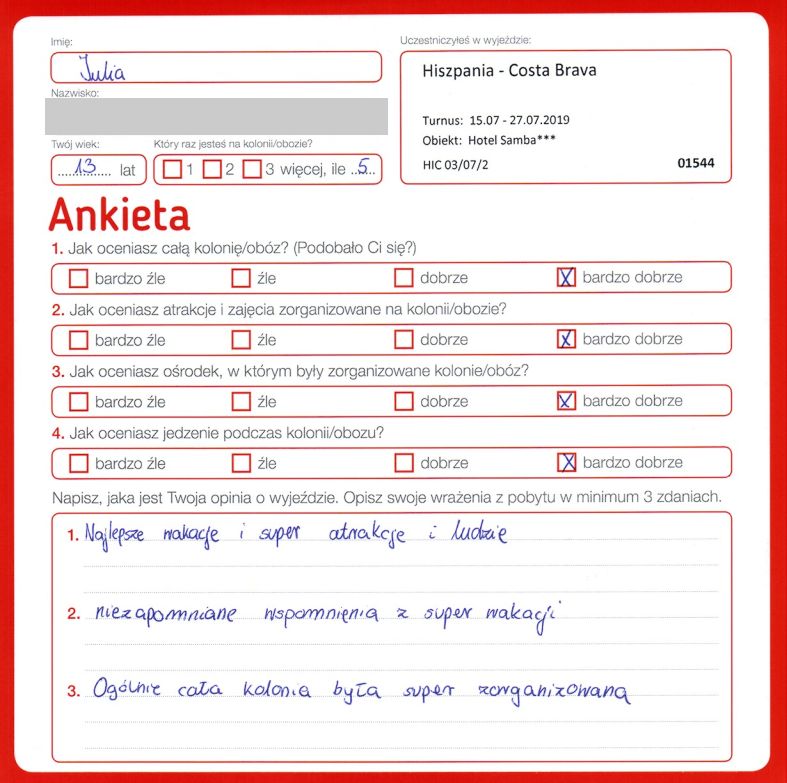 Imię:
Uczestniczyłeś w wyjeździe:
Julia
Hiszpania - Costa Brava
Nazwisko:
Turnus: 15.07 - 27.07.2019
Obiekt: Hotel Samba***
HIC 03/07/2 01544
Twój wiek: Który raz jesteś na kolonii/obozie?
13 lat 1 2 3 więcej, ile 5
Ankieta
1. Jak oceniasz całą kolonię/obóz? (Podobało Ci się?)
bardzo źle źle dobrze X bardzo dobrze
2. Jak oceniasz atrakcje i zajęcia zorganizowane na kolonii/obozie?
bardzo źle źle dobrze X bardzo dobrze
3. Jak oceniasz ośrodek, w którym były zorganizowane kolonie/obóz?
bardzo źle źle dobrze X bardzo dobrze
4. Jak oceniasz jedzenie podczas kolonii/obozu?
bardzo źle źle dobrze X bardzo dobrze
Napisz, jaka jest Twoja opinia o wyjeździe. Opisz swoje wrażenia z pobytu w minimum 3 zdaniach.
1. Najlepsze wakacje i super atrakcje i ludzie
2. niezapomniane wspomnienia z super wakacji
3. Ogólnie cała kolonia była super zorganizowaną